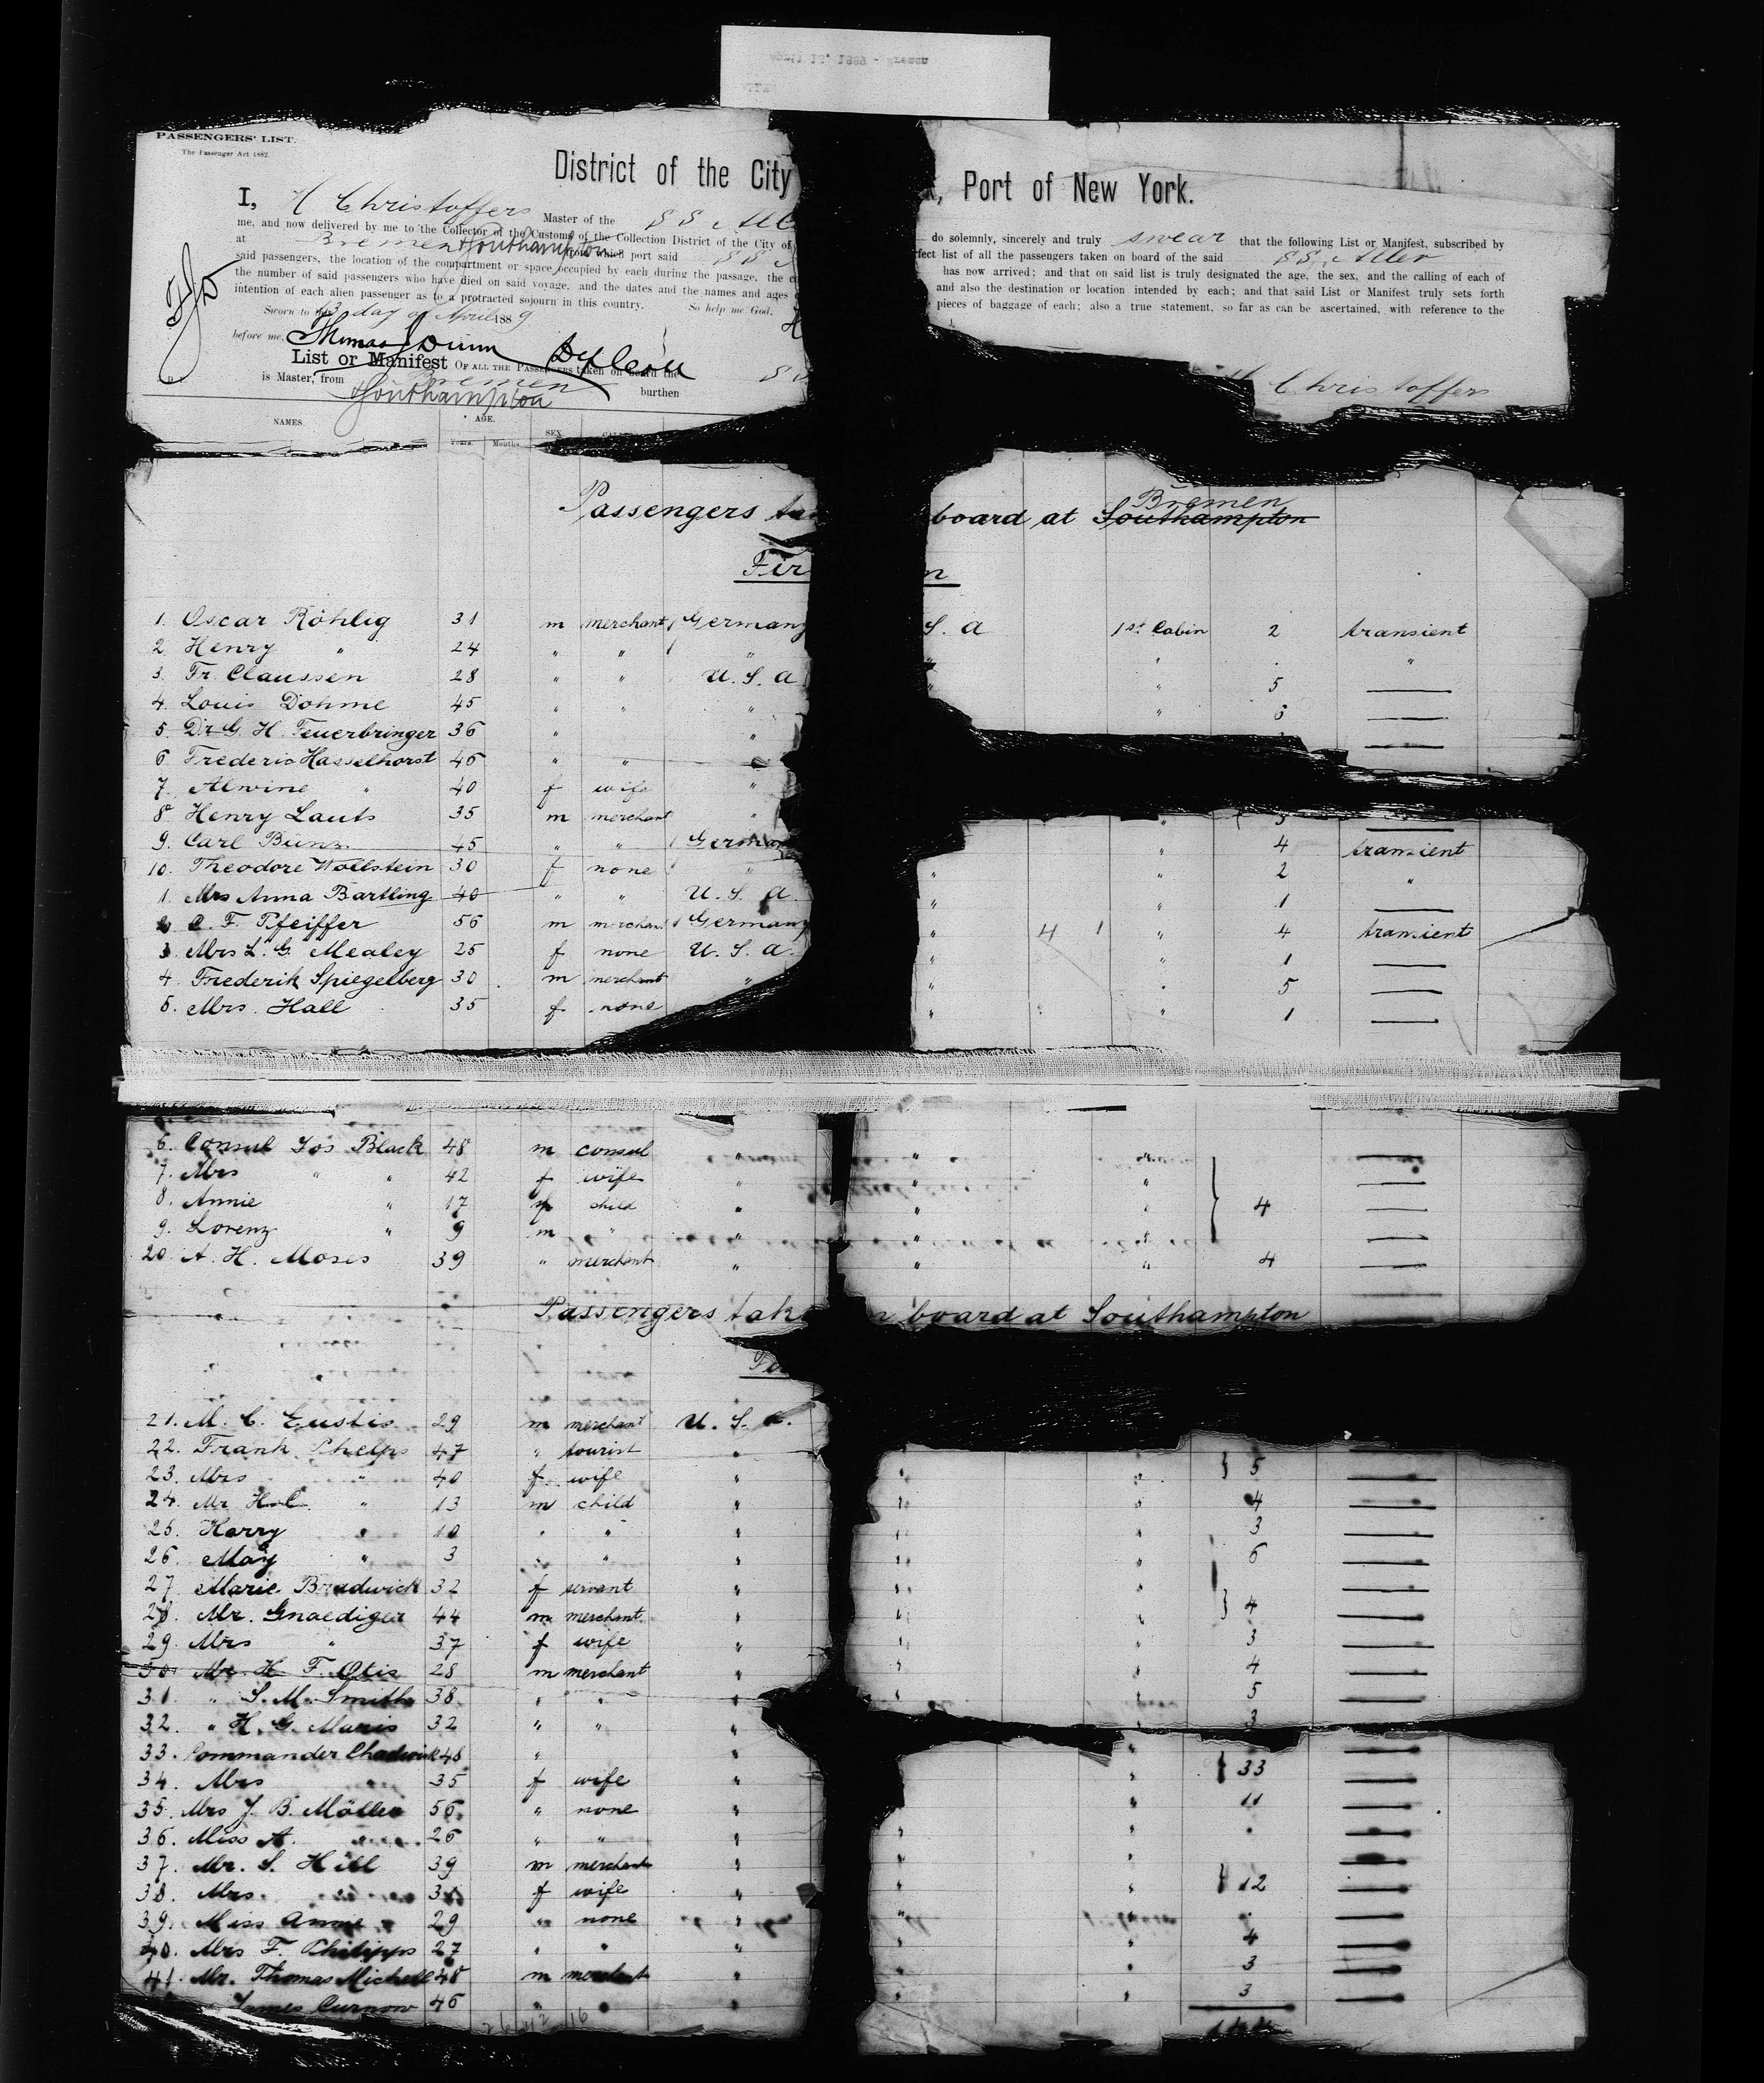 PASSENGERS' LIST.
The Passenger Act 1882.
District of the City
Port of New York.
I, H Christoffers Master of the SS
do solemnly, sincerely and truly swear that the following List or Manifest, subscribed by
me, and now delivered by me to the Collector of the Customs of the Collection District of the City of
fect list of all the passengers taken on board of the said SS. Aller
at Bremen & Southampton from which port said SS
has now arrived; and that on said list is truly designated the age, the sex, and the calling of each of
said passengers, the location of the compartment or space occupied by each during the passage, the
and also the destination or location intended by each; and that said List or Manifest truly sets forth
the number of said passengers who have died on said voyage, and the dates and the names and ages
pieces of baggage of each; also a true statement, so far as can be ascertained, with reference to the
intention of each alien passenger as to a protracted sojourn in this country. So help me God.
Sworn to 13 day of April 1889
before me, Thomas J Dunn
List or Manifest OF ALL THE PASSENGERS taken on board the
is Master, from Bremen burthen
& Southampton
Christoffers
NAMES. AGE. SEX
Years. Months.
Passengers board at Southampton Bremen
Fir
1. Oscar Röhlig 31 m merchant Germany S. A 1st Cabin 2 transient
2. Henry " 24 " " " " " "
3. Fr. Claussen 28 " " U. S. A " " 5 —
4. Louis Dohme 45 " " " " —
5. Dr G. H. Feuerbringer 36 " " —
6. Frederic Hasselhorst 46 " "
7. Alwine " 40 f wife "
8. Henry Lauts 35 m merchant " " —
9. Carl Bünz 45 " " German " 4 transient
10. Theodore Wollstein 30 f none " " " 2 "
1. Mrs Anna Bartling 40 " " U. S. A. " " 1 —
2 C. F. Pfeiffer 56 m merchant Germany " 4 1 " 4 transient
3 Mrs L. G. Mealey 25 f none U. S. A. " " 1 —
4. Frederik Spiegelberg 30 m merchant " " " 5 —
5. Mrs. Hall 35 f none " " 1 —
6. Consul Jos Black 48 m consul " " " —
7. Mrs " " 42 f wife " " " —
8. Annie " 17 f child " " " 4 —
9. Lorenz " 9 m " " " " —
20. A. H. Moses 39 " merchant " " " 4 —
Passengers tak board at Southampton
21. M. C. Eustis 29 m merchant U. S. A.
22. Frank Phelps 47 " tourist " " " 5 —
23. Mrs " 40 f wife " " " —
24. Mr H. C. " 13 m child " " " 4 —
25. Harry " 10 " " " " " 3 —
26. May " 3 " " " " " 6 —
27. Marie Bradwick 32 f servant " " " —
28. Mr. Gnaediger 44 m merchant " " " 4 —
29. Mrs " 37 f wife " " " 3 —
30. Mr. H. F. Otis 28 m merchant " " " 4 —
31. " S. M. Smith 38 " " " " " 5 —
32. " H. G. Maris 32 " " " " 3
33. Commander Chadwick 48 " " " 33 —
34. Mrs " 35 f wife " " —
35. Mrs J. B. Möller 56 " none " " 11 —
36. Miss A. " 26 " " " " " —
37. Mr. S. Hill 39 m merchant " " —
38. Mrs. " f wife " " 12 —
39. Miss Annie " 29 " none " " " —
40. Mrs F. Philipps 27 " " " " 4 —
41. Mr. Thomas Michell 48 m merchant " " " 3 —
James Curnow 46 " " " " " 3 —